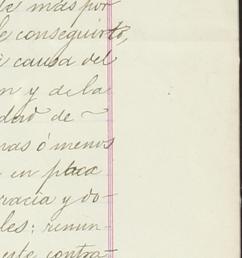 te mas por
le conseguirlo,
a causa del
n y de la
dad de
mas ó menos
en placa
racia y do-
les; renun-
este contra-